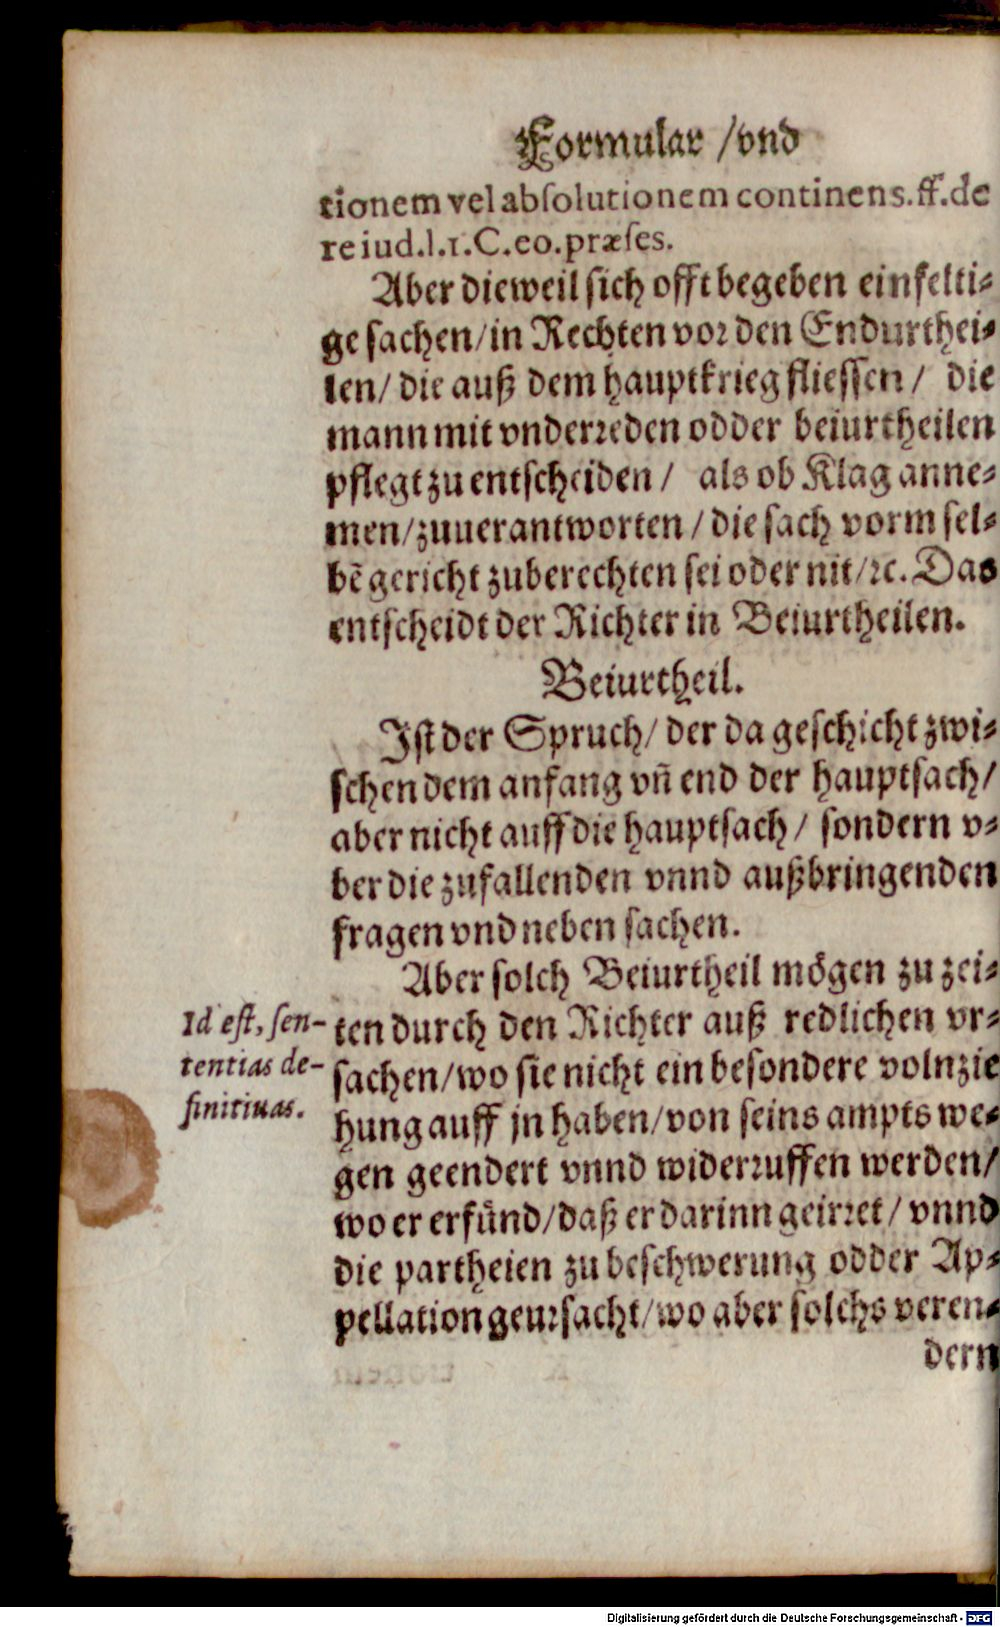 Formular /vnd
tionem vel abſolutionem continens.ff.de
re iud.l.1.C.eo.præſes.
Aber dieweil ſich offt begeben einfelti⸗
ge ſachen/in Rechten vor den Endurthei⸗
len/ die auß dem hauptkrieg flieſſen / die
mann mit vnderreden odder beiurtheilen
pflegt zu entſcheiden / als ob Klag anne⸗
men/zuuerantworten / die ſach vorm ſel⸗
bē gericht zuberechten ſei oder nit/ꝛc. Das
entſcheidt der Richter in Beiurtheilen.
Beiurtheil.
Iſt der Spruch/ der da geſchicht zwi⸗
ſchen dem anfang vñ end der hauptſach/
aber nicht auff die hauptſach / ſondern v⸗
ber die zufallenden vnnd außbringenden
fragen vnd neben ſachen.
Aber ſolch Beiurtheil mögen zu zei⸗
ten durch den Richter auß redlichen vr⸗
ſachen/wo ſie nicht ein beſondere volnzie
hung auff jn haben/von ſeins ampts we⸗
gen geendert vnnd widerruffen werden/
wo er erfünd/daß er darinn geirret / vnnd
die partheien zu beſchwerung odder Ap⸗
pellation geurſacht/wo aber ſolchs veren⸗
dern
Id eſt, ſen-
tentias de-
finitiuas.
Digitalisierung gefördert durch die Deutsche Forschungsgemeinschaft - DFG